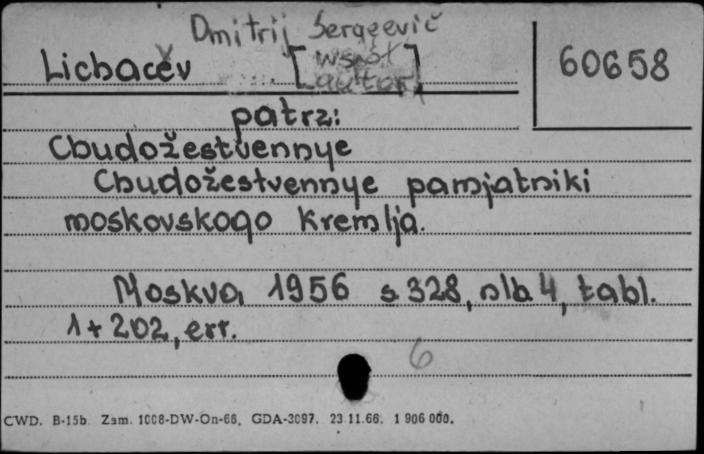 Dmitrij Sergeevič
Lichacev [współ
autor]
60658
patrz:
Chudožestvennye
Chudožestvennye pamjatniki
moskovskogo Kremlja.
Moskva 1956 s 328, nlb 4, tabl.
1 + 202, err.
6
CWD. B-15b. Zam. 1008-DW-On-66. GDA-3097. 23.11.66. 1 906 000.